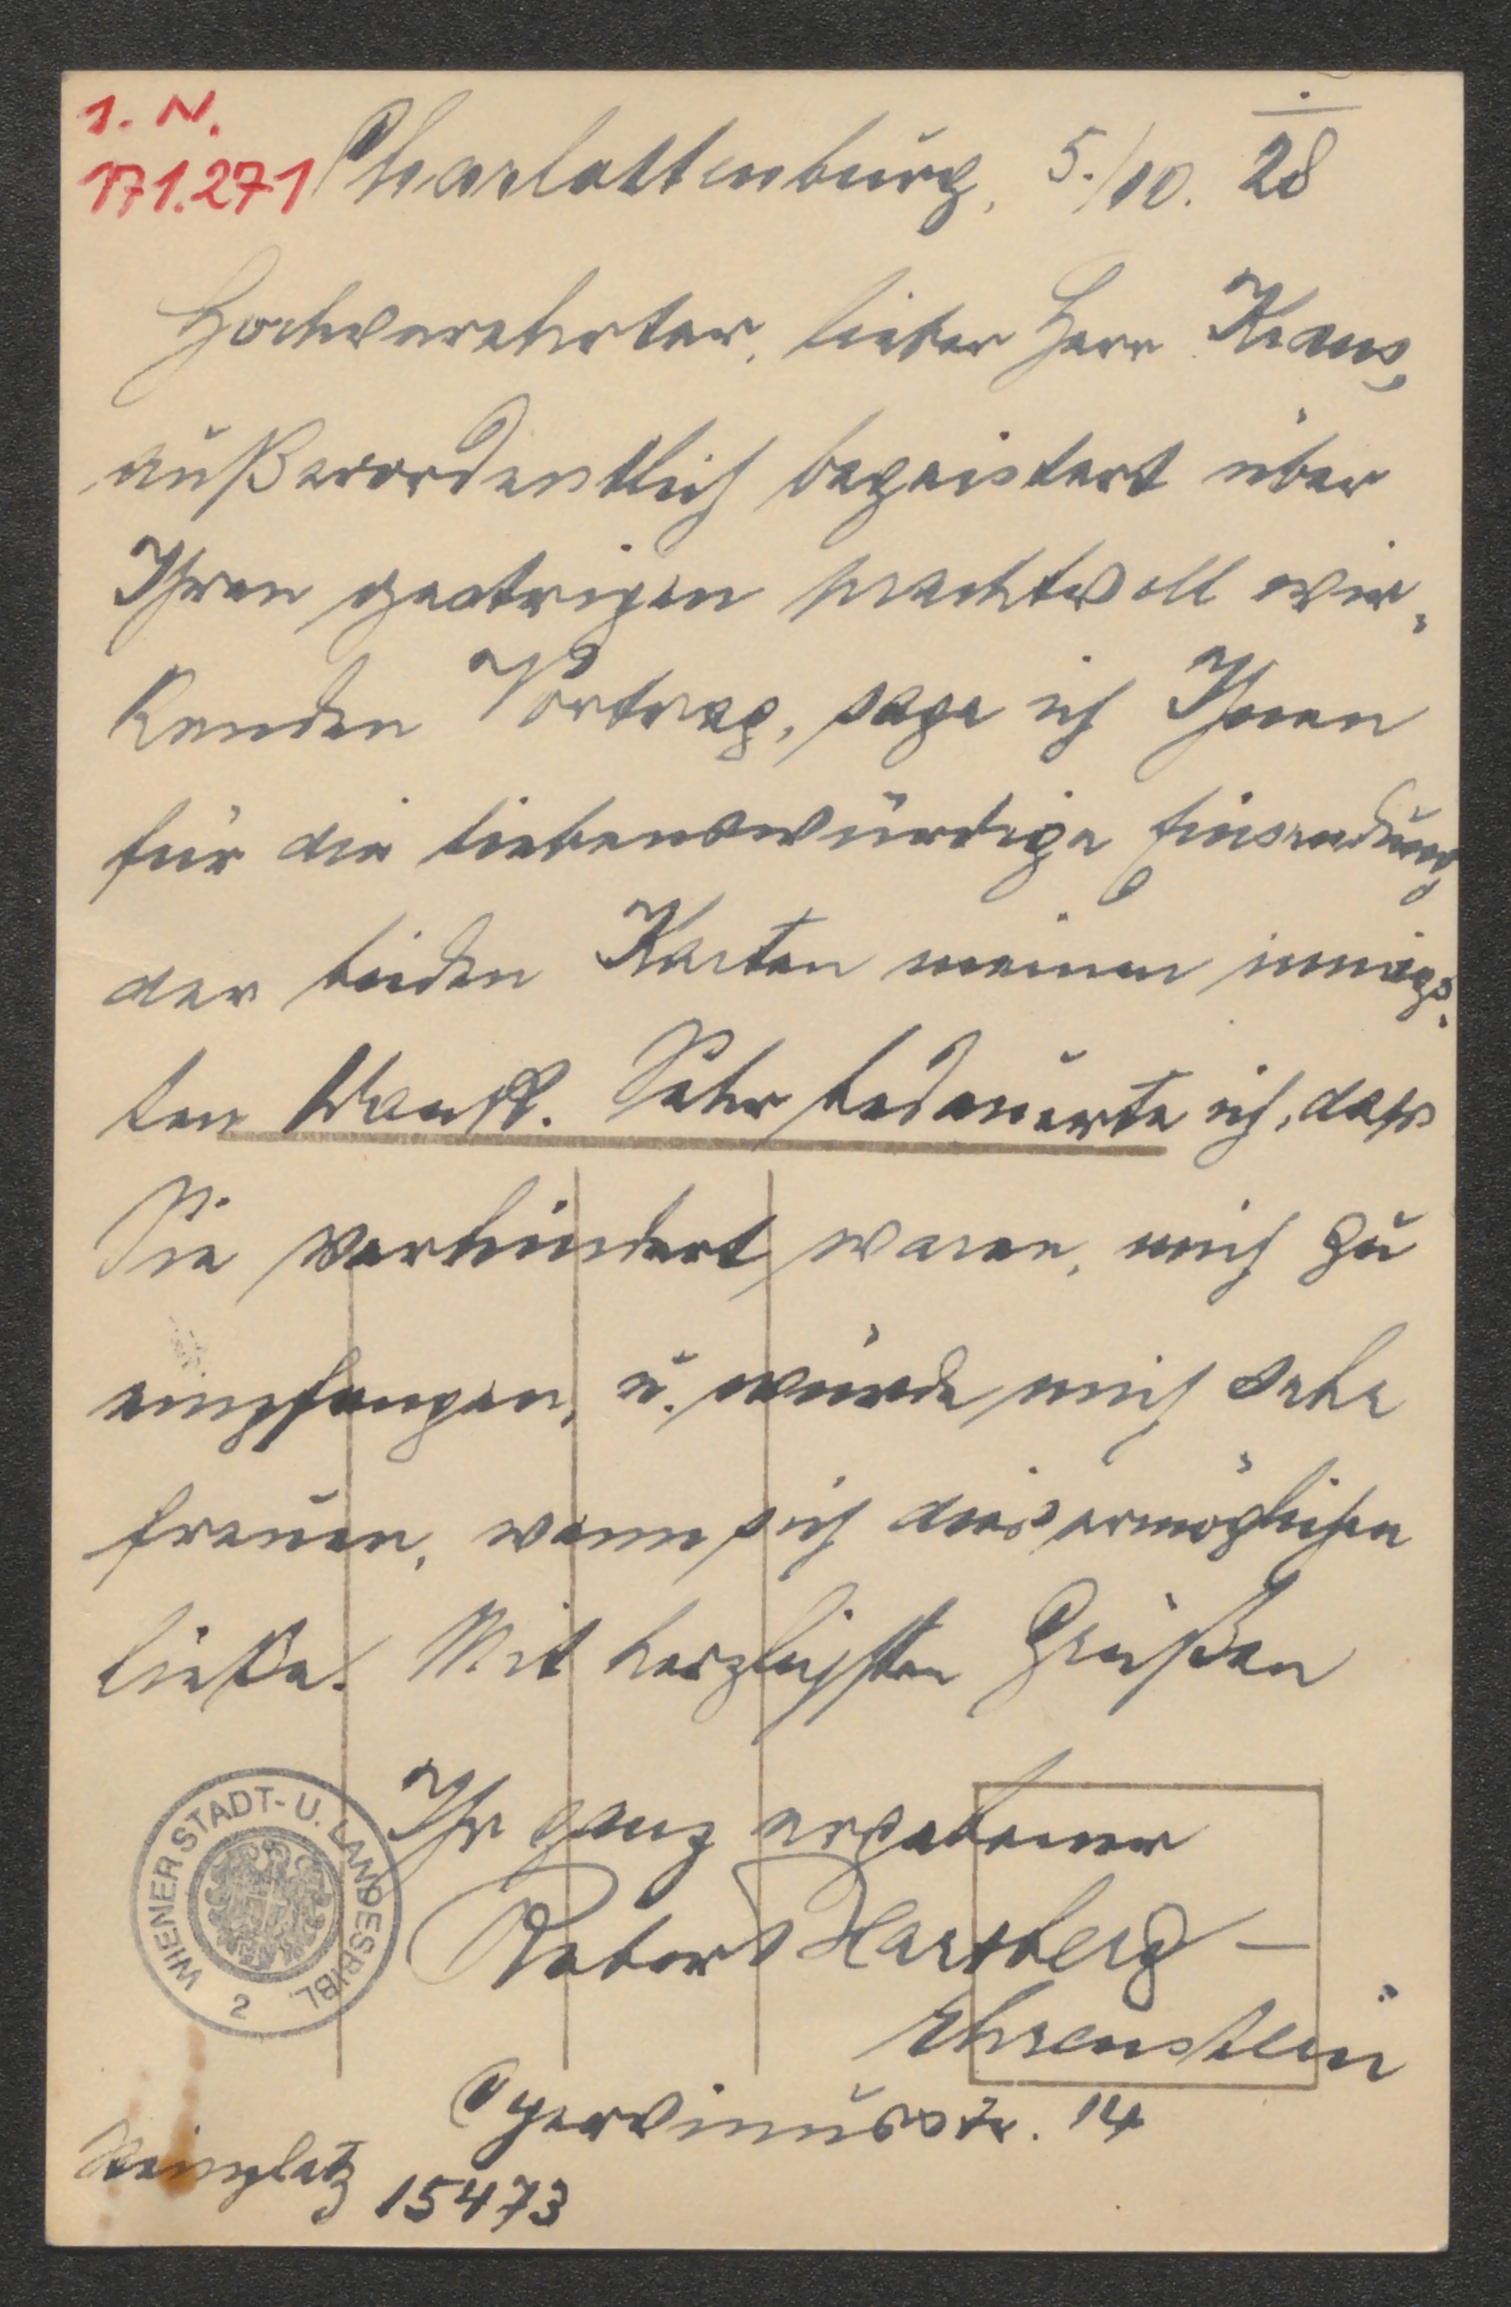 I. N.
171.271
Charlottenburg, 5./10. 28
Hochverehrter, lieber Herr Kraus,
außerordentlich begeistert über
Ihren gestrigen prachtvoll wir-
kenden Vortrag, sage ich Ihnen
für die liebenswürdige Einsendung
der beiden Karten meinen innigs-
ten Dank. Sehr bedauerte ich, dass
Sie verhindert waren, mich zu
empfangen, u. würde mich sehr
freuen, wenn sich dies ermöglichen
ließe. Mit herzlichsten Grüßen
Ihr ganz ergebener
Robert Harsberg-
Ehrenstein
Gervinusstr. 14
Steinplatz 15473
WIENER STADT- U. LANDESBIBL. 2